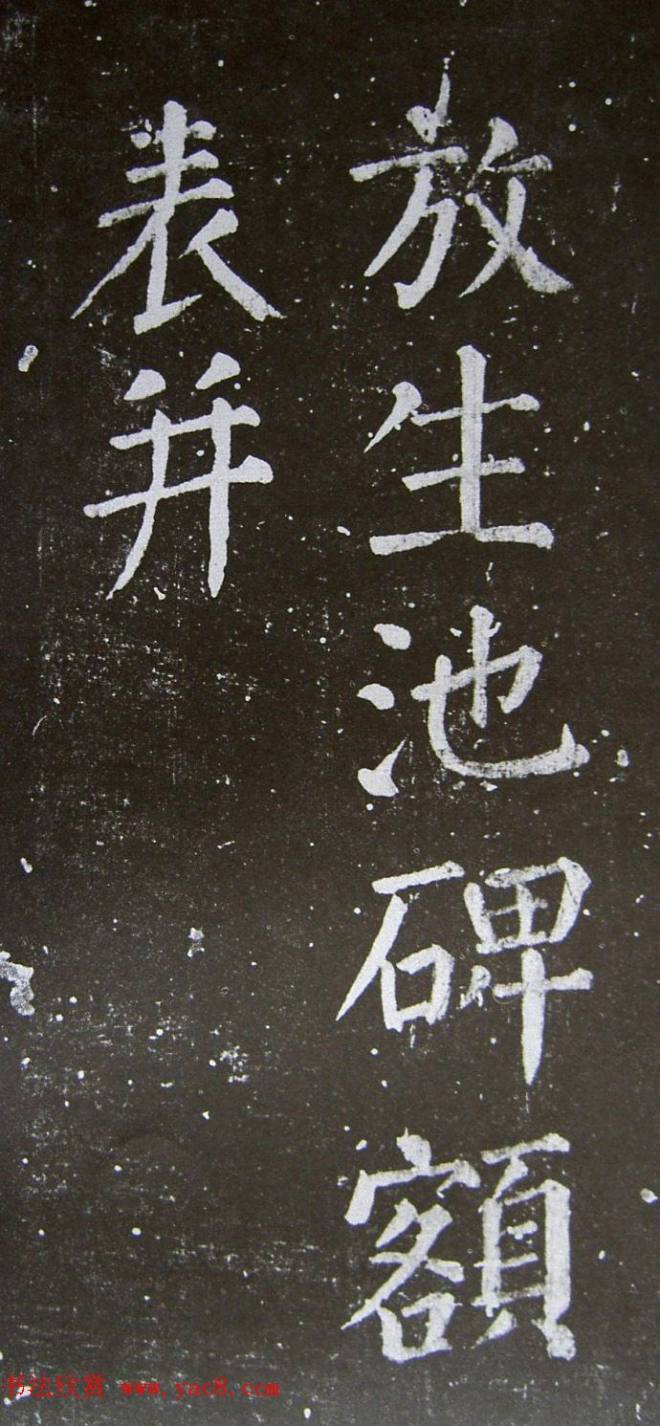 放生池碑額
表并
书法欣赏 www.yac8.com